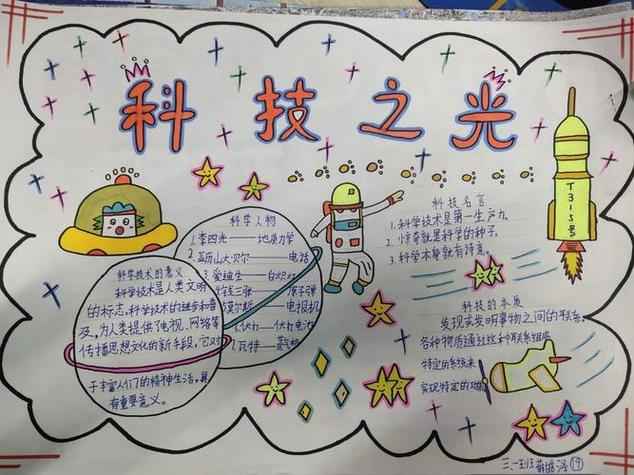 科技之光
科技名言
1.科学技术是第一生产力
2.好奇就是科学的种子
3.科学本身就有诗意。
T315号
科学人物
1.李四光——地质力学
2.亚历山大贝尔——电话
3.爱迪生——白炽灯
原子弹
莫尔斯——电报机
伏打——伏打电池
瓦特——蒸气机
科学技术的意义
科学技术是人类文明
的标志,科学技术的进步和普
及,为人类提供了电视、网络等
传播思想文化的新手段,它对
于丰富人们的精神生活,具
有重要意义。
科技的本质
发现或发明事物之间的联系
各种物质通过这种联系组成
特定的系统来
实现特定的功能
三、一班
19